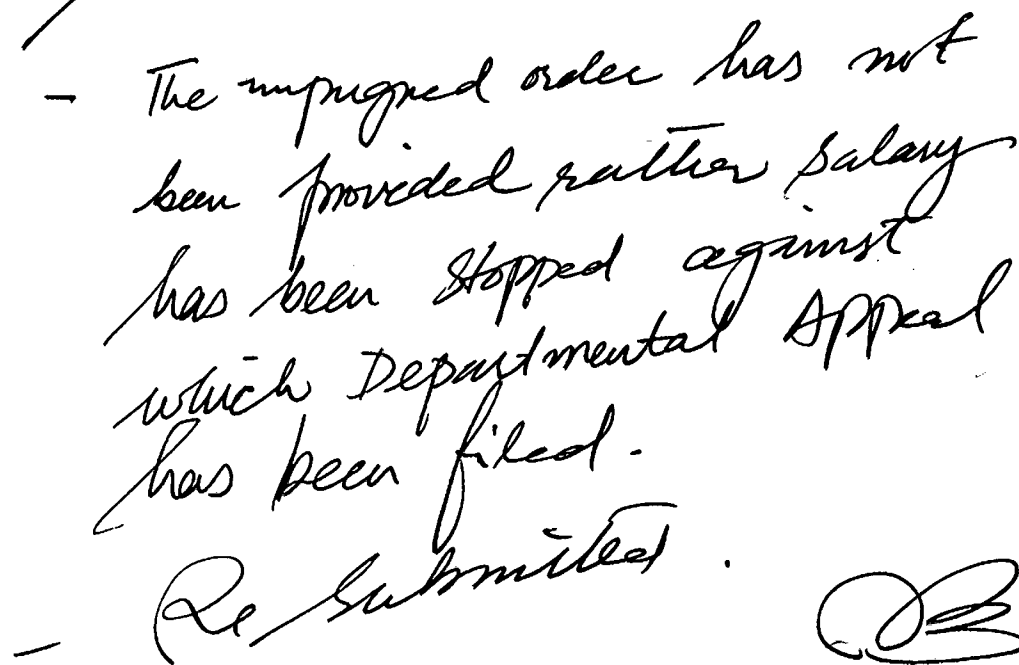 - The impugned order has not
been provided rather salary
has been stopped against
which Departmental Appeal
has been filed.
- Re Submitted.